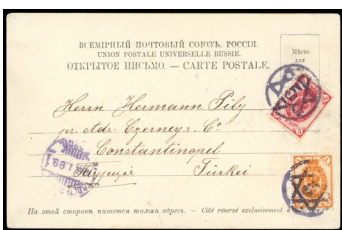 ВСЕМІРНЫЙ ПОЧТОВЫЙ СОЮЗЪ. РОССІЯ.
UNION POSTALE UNIVERSELLE RUSSIE.
ОТКРЫТОЕ ПИСЬМО. — CARTE POSTALE.
Мѣсто
для
Herrn Hermann Pily
pr. Adr. Czerney & Co
Constantinopel
Турція Türkei
На этой сторонѣ пишется только адресъ. — Côté réservé exclusivement à